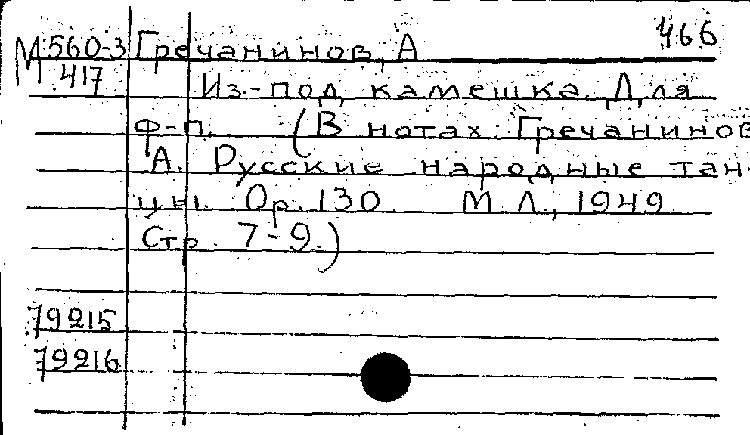 М560-3 Гречанинов, А 466
417 Из-под камешка. Для
ф-п. (В нотах: Гречанинов
А. Русские народные тан-
цы. Ор. 130 М.Л., 1949
Стр. 7-9.)
79215
79216